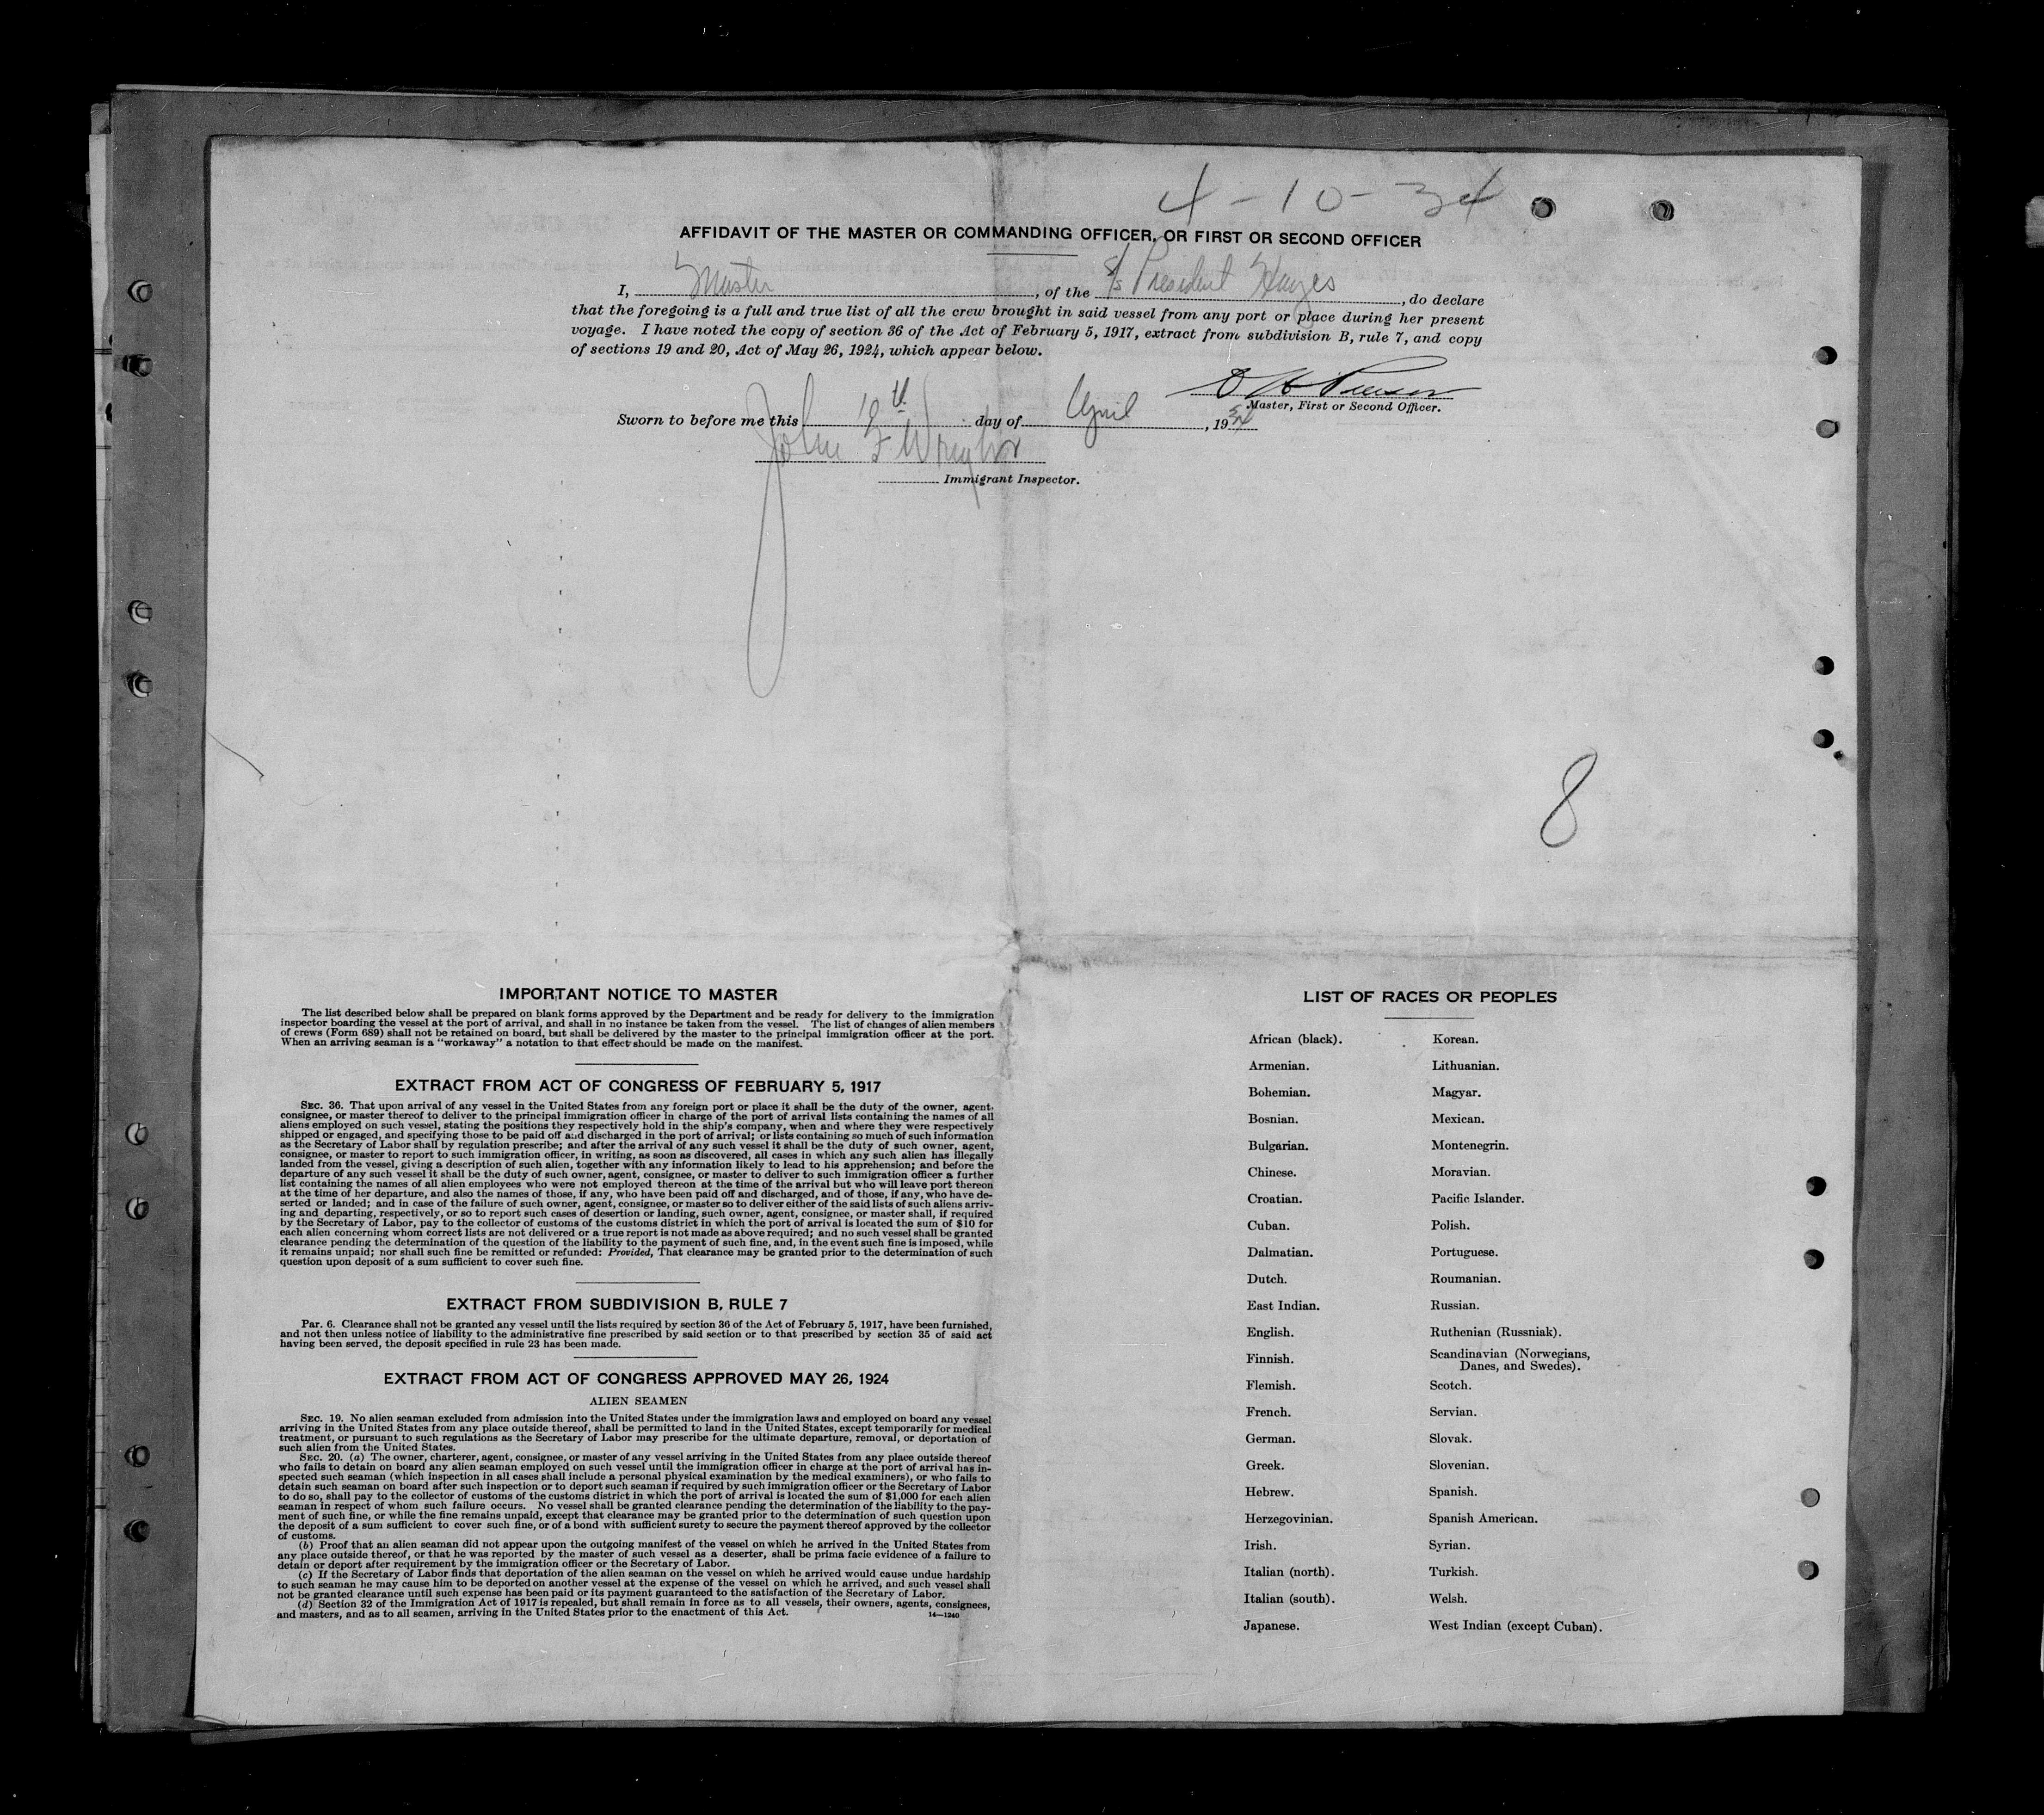 4-10-34
AFFIDAVIT OF THE MASTER OR COMMANDING OFFICER, OR FIRST OR SECOND OFFICER
I, Master, of the S/s President Hayes, do declare
that the foregoing is a full and true list of all the crew brought in said vessel from any port or place during her present
voyage. I have noted the copy of section 36 of the Act of February 5, 1917, extract from subdivision B, rule 7, and copy
of sections 19 and 20, Act of May 26, 1924, which appear below.
Master, First or Second Officer.
Sworn to before me this 10th day of April, 1934
John F Wright
Immigrant Inspector.
8
IMPORTANT NOTICE TO MASTER
The list described below shall be prepared on blank forms approved by the Department and be ready for delivery to the immigration
inspector boarding the vessel at the port of arrival, and shall in no instance be taken from the vessel. The list of changes of alien members
of crews (Form 689) shall not be retained on board, but shall be delivered by the master to the principal immigration officer at the port.
When an arriving seaman is a "workaway" a notation to that effect should be made on the manifest.
EXTRACT FROM ACT OF CONGRESS OF FEBRUARY 5, 1917
SEC. 36. That upon arrival of any vessel in the United States from any foreign port or place it shall be the duty of the owner, agent,
consignee, or master thereof to deliver to the principal immigration officer in charge of the port of arrival lists containing the names of all
aliens employed on such vessel, stating the positions they respectively hold in the ship's company, when and where they were respectively
shipped or engaged, and specifying those to be paid off and discharged in the port of arrival; or lists containing so much of such information
as the Secretary of Labor shall by regulation prescribe; and after the arrival of any such vessel it shall be the duty of such owner, agent,
consignee, or master to report to such immigration officer, in writing, as soon as discovered, all cases in which any such alien has illegally
landed from the vessel, giving a description of such alien, together with any information likely to lead to his apprehension; and before the
departure of any such vessel it shall be the duty of such owner, agent, consignee, or master to deliver to such immigration officer a further
list containing the names of all alien employees who were not employed thereon at the time of the arrival but who will leave port thereon
at the time of her departure, and also the names of those, if any, who have been paid off and discharged, and of those, if any, who have de-
serted or landed; and in case of the failure of such owner, agent, consignee, or master so to deliver either of the said lists of such aliens arriv-
ing and departing, respectively, or so to report such cases of desertion or landing, such owner, agent, consignee, or master shall, if required
by the Secretary of Labor, pay to the collector of customs of the customs district in which the port of arrival is located the sum of $10 for
each alien concerning whom correct lists are not delivered or a true report is not made as above required; and no such vessel shall be granted
clearance pending the determination of the question of the liability to the payment of such fine, and, in the event such fine is imposed, while
it remains unpaid; nor shall such fine be remitted or refunded: Provided, That clearance may be granted prior to the determination of such
question upon deposit of a sum sufficient to cover such fine.
EXTRACT FROM SUBDIVISION B, RULE 7
Par. 6. Clearance shall not be granted any vessel until the lists required by section 36 of the Act of February 5, 1917, have been furnished,
and not then unless notice of liability to the administrative fine prescribed by said section or to that prescribed by section 35 of said act
having been served, the deposit specified in rule 23 has been made.
EXTRACT FROM ACT OF CONGRESS APPROVED MAY 26, 1924
ALIEN SEAMEN
SEC. 19. No alien seaman excluded from admission into the United States under the immigration laws and employed on board any vessel
arriving in the United States from any place outside thereof, shall be permitted to land in the United States, except temporarily for medical
treatment, or pursuant to such regulations as the Secretary of Labor may prescribe for the ultimate departure, removal, or deportation of
such alien from the United States.
SEC. 20. (a) The owner, charterer, agent, consignee, or master of any vessel arriving in the United States from any place outside thereof
who fails to detain on board any alien seaman employed on such vessel until the immigration officer in charge at the port of arrival has in-
spected such seaman (which inspection in all cases shall include a personal physical examination by the medical examiners), or who fails to
detain such seaman on board after such inspection or to deport such seaman if required by such immigration officer or the Secretary of Labor
to do so, shall pay to the collector of customs of the customs district in which the port of arrival is located the sum of $1,000 for each alien
seaman in respect of whom such failure occurs. No vessel shall be granted clearance pending the determination of the liability to the pay-
ment of such fine, or while the fine remains unpaid, except that clearance may be granted prior to the determination of such question upon
the deposit of a sum sufficient to cover such fine, or of a bond with sufficient surety to secure the payment thereof approved by the collector
of customs.
(b) Proof that an alien seaman did not appear upon the outgoing manifest of the vessel on which he arrived in the United States from
any place outside thereof, or that he was reported by the master of such vessel as a deserter, shall be prima facie evidence of a failure to
detain or deport after requirement by the immigration officer or the Secretary of Labor.
(c) If the Secretary of Labor finds that deportation of the alien seaman on the vessel on which he arrived would cause undue hardship
to such seaman he may cause him to be deported on another vessel at the expense of the vessel on which he arrived, and such vessel shall
not be granted clearance until such expense has been paid or its payment guaranteed to the satisfaction of the Secretary of Labor.
(d) Section 32 of the Immigration Act of 1917 is repealed, but shall remain in force as to all vessels, their owners, agents, consignees,
and masters, and as to all seamen, arriving in the United States prior to the enactment of this Act.
14—1240
LIST OF RACES OR PEOPLES
African (black).
Armenian.
Bohemian.
Bosnian.
Bulgarian.
Chinese.
Croatian.
Cuban.
Dalmatian.
Dutch.
East Indian.
English.
Finnish.
Flemish.
French.
German.
Greek.
Hebrew.
Herzegovinian.
Irish.
Italian (north).
Italian (south).
Japanese.
Korean.
Lithuanian.
Magyar.
Mexican.
Montenegrin.
Moravian.
Pacific Islander.
Polish.
Portuguese.
Roumanian.
Russian.
Ruthenian (Russniak).
Scandinavian (Norwegians,
Danes, and Swedes).
Scotch.
Servian.
Slovak.
Slovenian.
Spanish.
Spanish American.
Syrian.
Turkish.
Welsh.
West Indian (except Cuban).